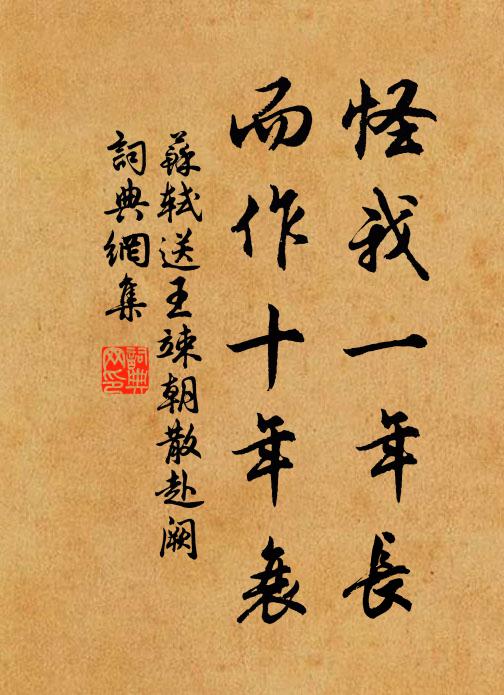 怪我一年長
而作十年衰
蘇軾送王竦朝散赴闕
詞典網集
詞典網印